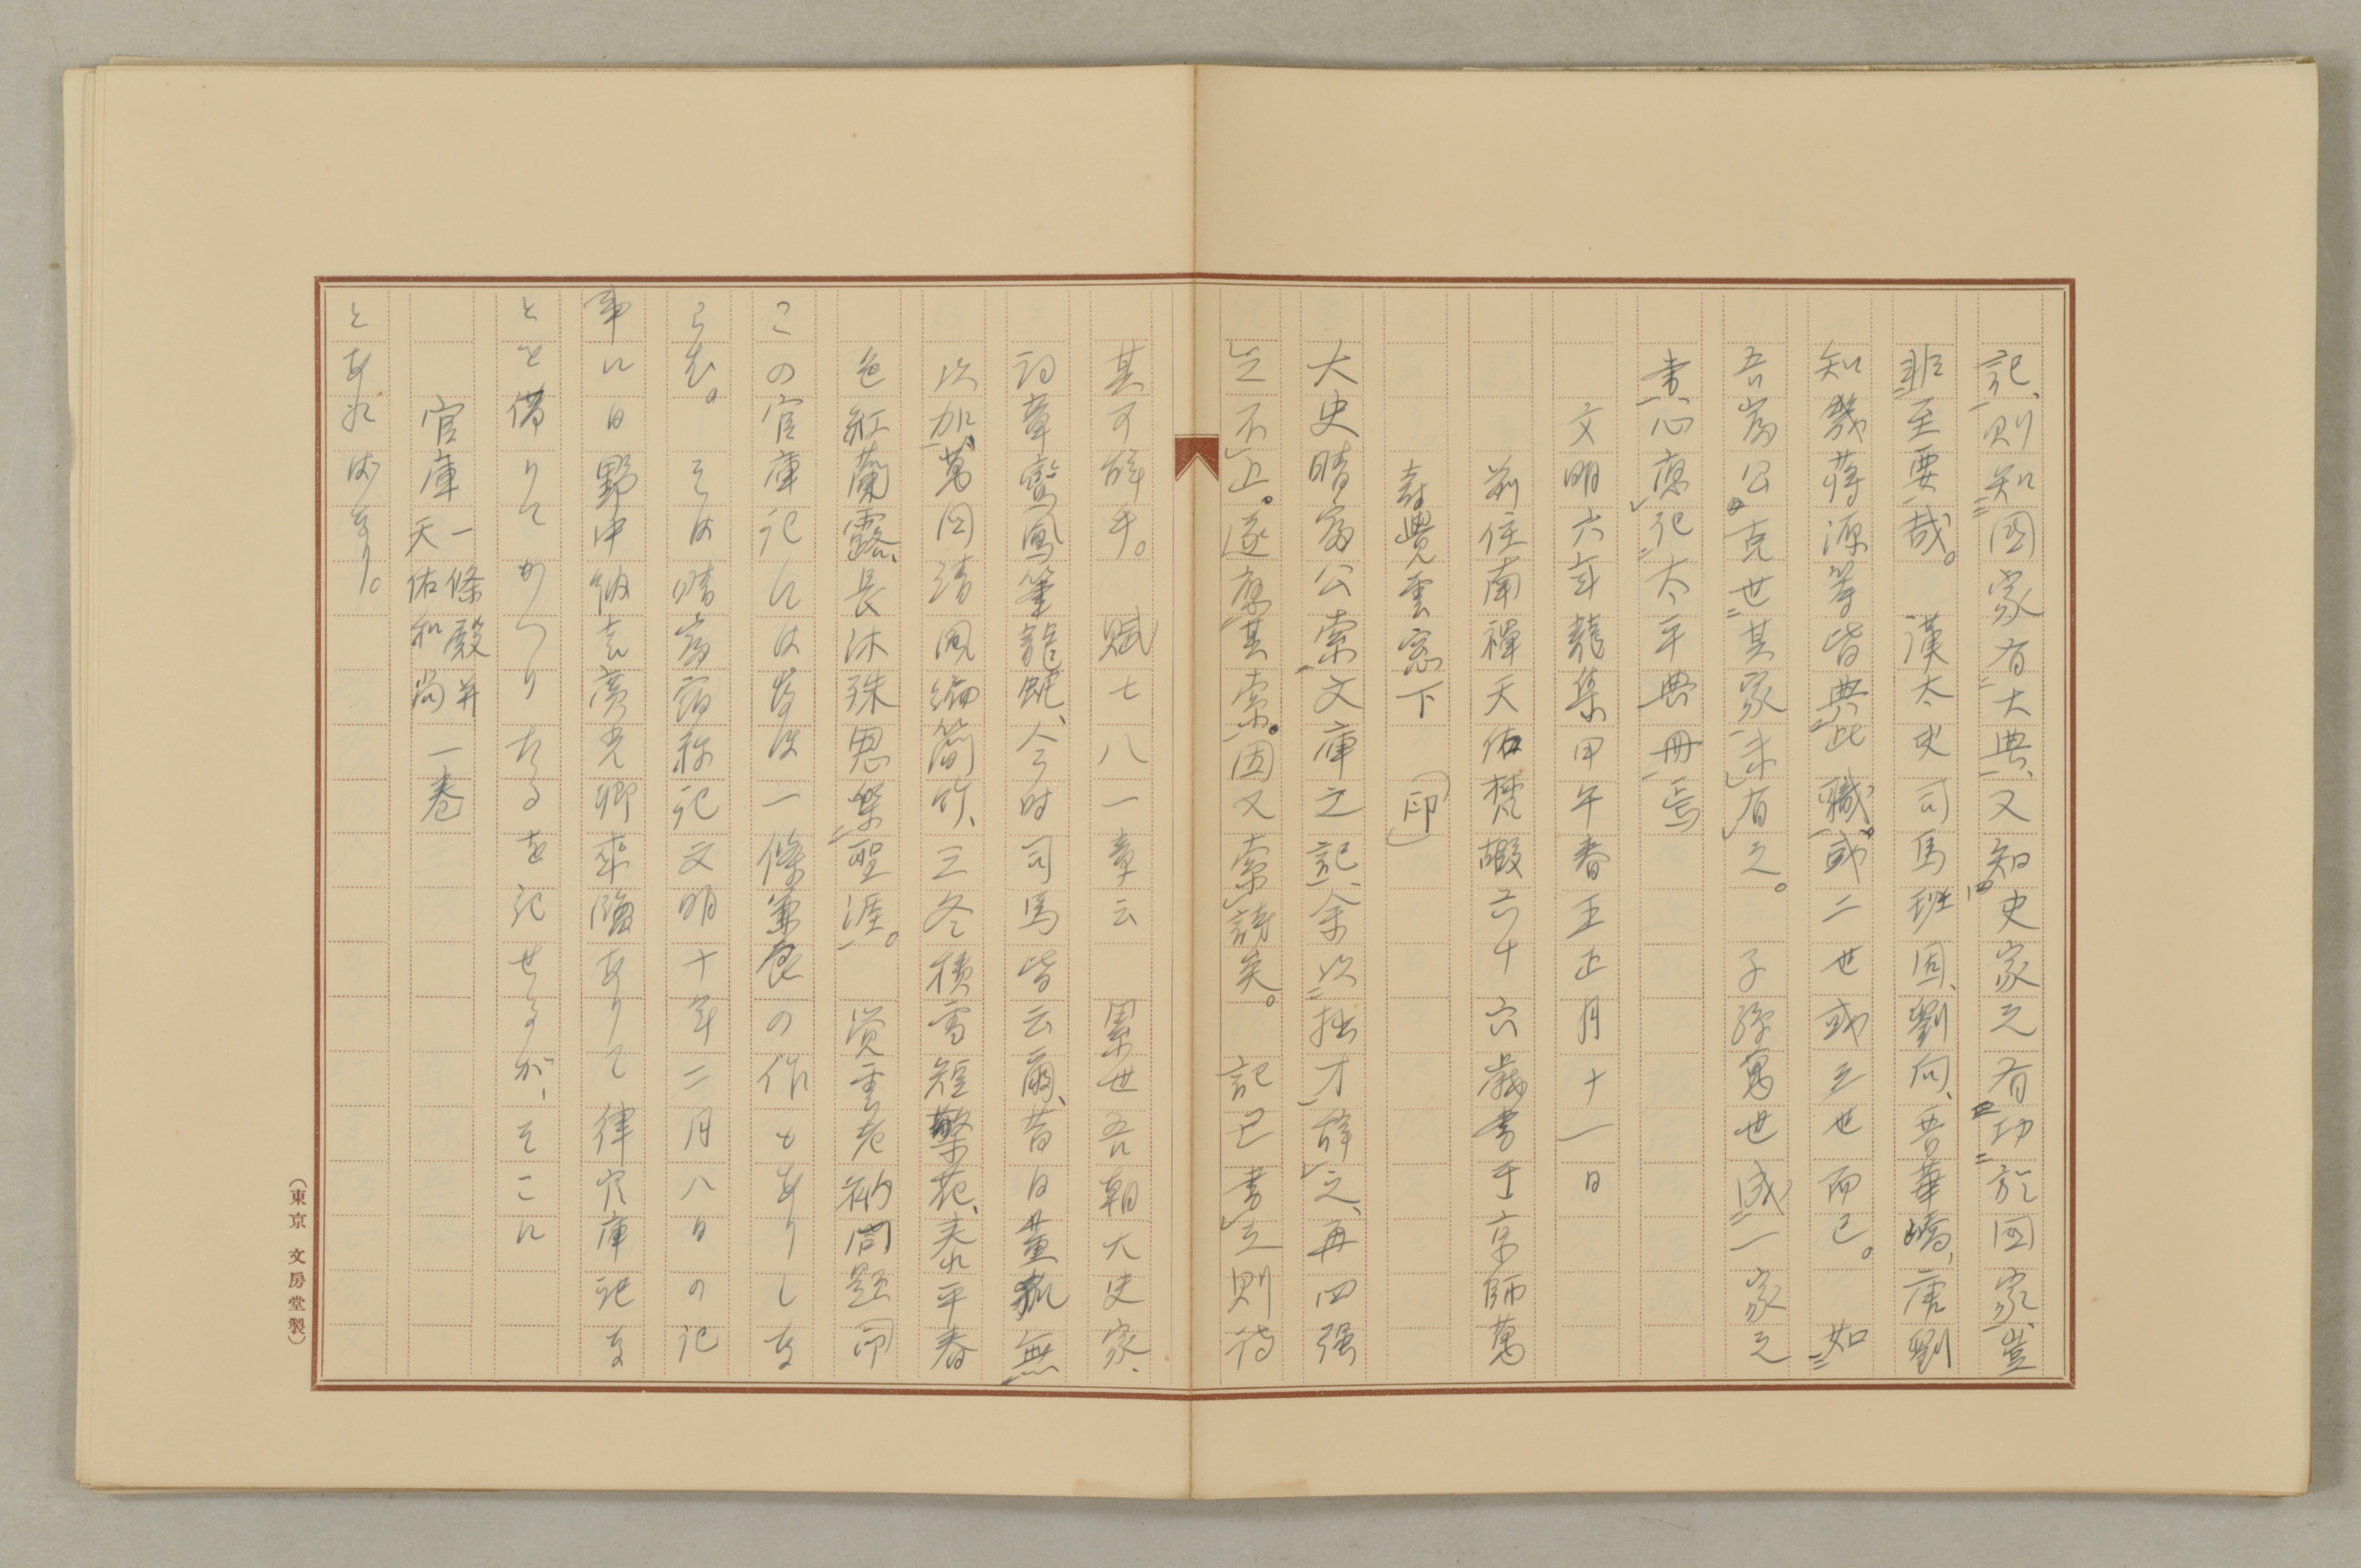 記、則知国家有大典、又知史家之有功於国家、豈
非至要哉。　漢太史司馬班固、劉向、晋華嶠、唐劉
知幾蒋源等皆典此職。或二世或三世而已。　如
吾富公、克世其家、未有之。　子孫萬世、成一家之
書、心應記太平典冊焉
文明六年龍集甲午春王正月十一日
前住南禅天佑梵嘏六十六歳書于京師萬
寿覺雲窓下　（印）
大史晴富公索文庫之記、余以拙才辞之、再四强
之不止。遂應其索。固又索詩矣。　記已書之則詩
其可辞乎。　賦七八一章云　累世吾朝大史家、
詞章鸞鳳筆龍蛇、今時司馬皆云爾、昔日董狐無
以加、萬国清風編簡竹、三冬積雪短檠花、泰平春
色紅蘭露、長沐殊恩楽聖涯。　覚雲老衲同題印
この官庫記には尚ほ一條兼良の作もありしな
らむ。　そは晴富宿祢記文明十年二月八日の記
事に日野中納言廣光卿来臨ありて律官庫記な
とを借りてかへりたるを記せるが、そこに
官庫一條殿并天佑和尚一巻
とあれはなり。
（東京　文房堂製）